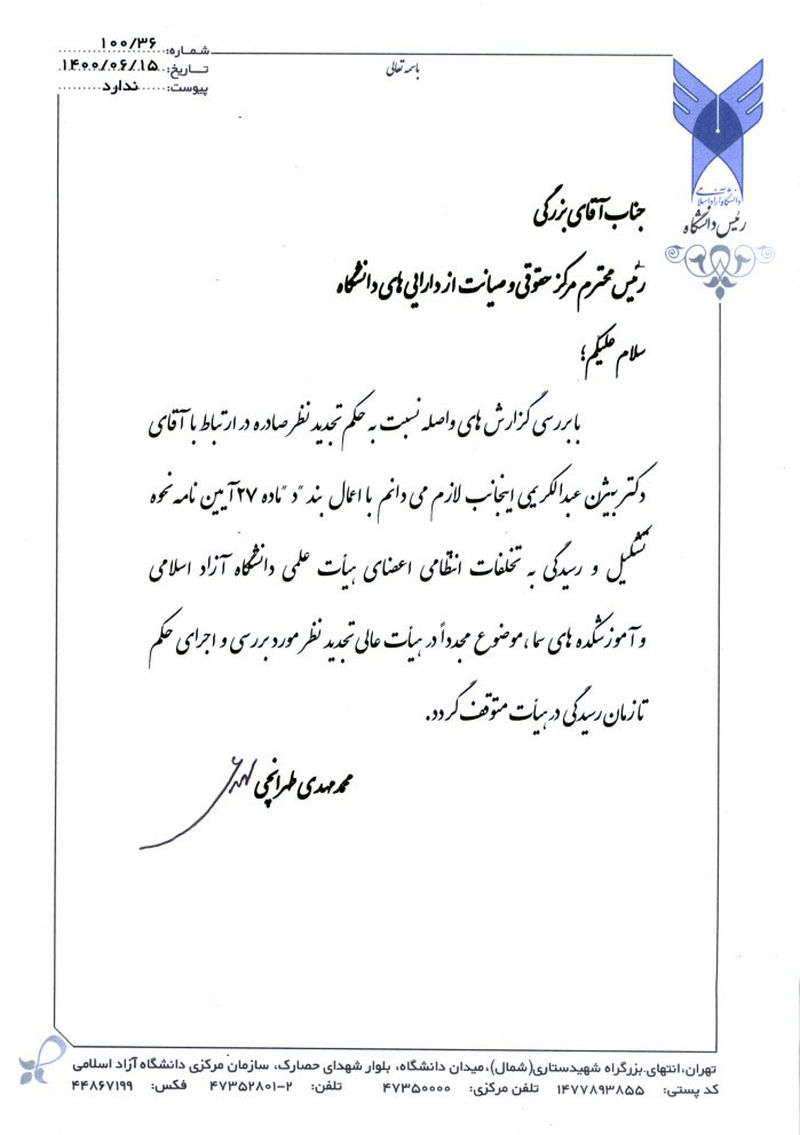 شماره: ۱۰۰/۳۶
تاریخ: ۱۴۰۰/۰۶/۱۵
پیوست: ندارد
باسمه تعالی
دانشگاه آزاد اسلامی
رئیس دانشگاه
جناب آقای بزرگی
رئیس محترم مرکز حقوقی و صیانت از دارایی های دانشگاه
سلام علیکم؛
با بررسی گزارش های واصله نسبت به حکم تجدید نظر صادره در ارتباط با آقای
دکتر بیژن عبدالکریمی اینجانب لازم می دانم با اعمال بند "د" ماده ۲۷ آیین نامه نحوه
تشکیل و رسیدگی به تخلفات انتظامی اعضای هیأت علمی دانشگاه آزاد اسلامی
و آموزشکده های سما، موضوع مجدداً در هیأت عالی تجدید نظر مورد بررسی و اجرای حکم
تا زمان رسیدگی در هیأت متوقف گردد.
محمد مهدی طهرانچی
تهران، انتهای بزرگراه شهیدستاری(شمال)، میدان دانشگاه، بلوار شهدای حصارک، سازمان مرکزی دانشگاه آزاد اسلامی
کد پستی: ۱۴۷۷۸۹۳۸۵۵ تلفن مرکزی: ۴۷۳۵۰۰۰۰ تلفن: ۴۷۳۵۲۸۰۱-۲ فکس: ۴۴۸۶۷۱۹۹